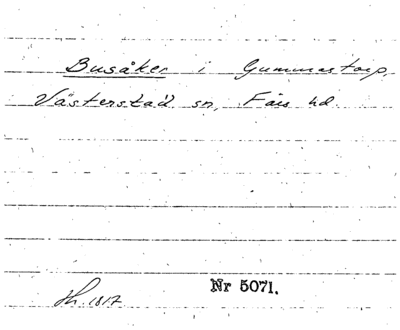 Busåker i Gummastorp,
Västerstad sn, Färs hd.
Sk. 1817
Nr 5071.